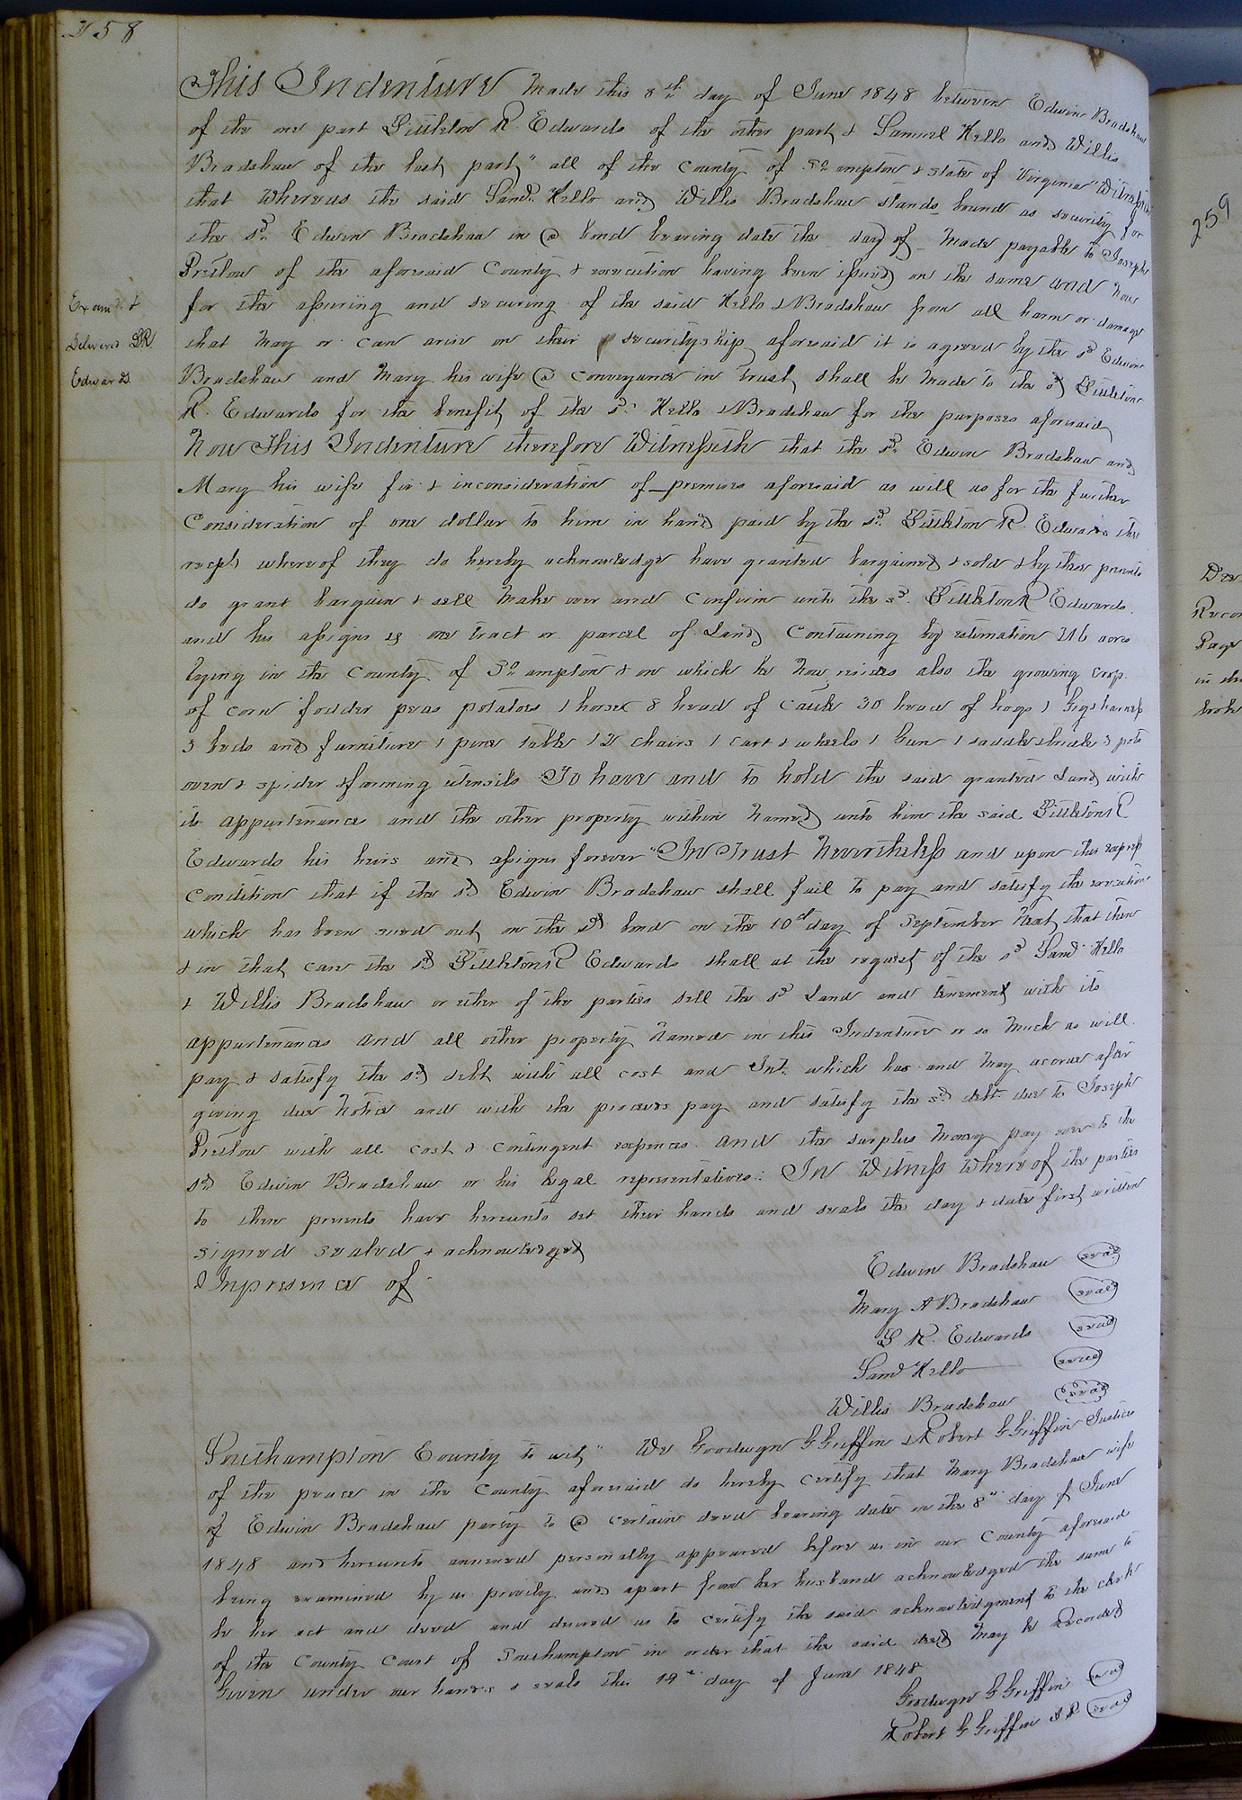 258
This Indenture Made this 8th day of June 1848 between Edwin Bradshaw
of the one part Littleton R Edwards of the other part & Samuel Kello and Willis
Bradshaw of the last part" all of the County of So ampton & state of Virginia "Witnesseth
that Whereas the said Saml Kello and Willis Bradshaw stands bound as security for
the sd. Edwin Bradshaw in a bond bearing date the day of Made payable to Joseph
Pretlow of the aforesaid County & execution having been issued on the same and now
for the assuring and securing of the said Kello & Bradshaw from all harm or damage
that May or can arise on their securityship aforesaid it is agreed by the sd Edwin
Bradshaw and Mary his wife a conveyance in trust shall be Made to the sd Littleton
R. Edwards for the benefit of the sd. Kello & Bradshaw for the purposes aforesaid
Now This Indenture therefore Witnesseth that the sd. Edwin Bradshaw and
Mary his wife for & inconsideration of premises aforesaid as will as for the further
Consideration of one dollar to him in hand paid by the sd. Littleton R Edwards the
recpt whereof they do hereby acknowledge have granted bargained & sold & by these presents
do grant bargain & sell Make over and Confirm unto the sd. Littleton R Edwards
and his assigns one tract or parcel of Land Containing by estimation 216 acres
lying in the County of So ampton & on which he now resides also the growing crop
of corn fodder peas potatoes 1 horse 8 head of Cattle 30 head of hogs 1 Gig & harness
3 beds and furniture 1 pine table 12 chairs 1 cart & wheels 1 Gun 1 saddle & bridle 3 pots
oven & spider & farming utensils To have and to hold the said granted Land with
its appurtenances and the other property within Named unto him the said Littleton R
Edwards his heirs and assigns forever "In Trust Nevertheless and upon this express
condition that if the sd Edwin Bradshaw shall fail to pay and satisfy the execution
which has been sued out on the sd bond on the 10th day of September Next that then
& in that case the sd Littleton R Edwards shall at the request of the sd Saml Kello
& Willis Bradshaw or either of the parties sell the sd Land and tenement with its
appurtenances and all other property Named in this Indenture or so Much as will
pay & satisfy the sd debt with all cost and Int. which has and May accrue after
giving due Notice and with the proceeds pay and satisfy the sd debt due to Joseph
Pretlow with all cost & contingent expences and the surplus Money pay over to the
sd Edwin Bradshaw or his legal representatives: In Witness Whereof the parties
to these presents have hereunto set their hands and seals the day & date first written
signed sealed & acknowledged
Inpresence of
Edwin Bradshaw seal
Mary A Bradshaw seal
L R. Edwards seal
Saml Kello seal
Willis Bradshaw seal
Southampton County to wit" We Goodwyn G Griffin & Robert G Griffin Justices
of the peace in the County aforesaid do hereby certify that Mary Bradshaw wife
of Edwin Bradshaw party to a certain deed bearing date on the 8th day of June
1848 and hereunto annexed personally appeared before us in our County aforesaid
being examined by us privily and apart from her husband acknowledged the same to
be her act and deed and desired us to certify the said acknowledgment to the clerk
of the County Court of Southampton in order that the said deed May be Recorded
Given under our hands & seals this 19th day of June 1848
Goodwyn G Griffin seal
Robert G Griffin J.P. seal
Examd. &
Delivered LR
Edwards
259
Page